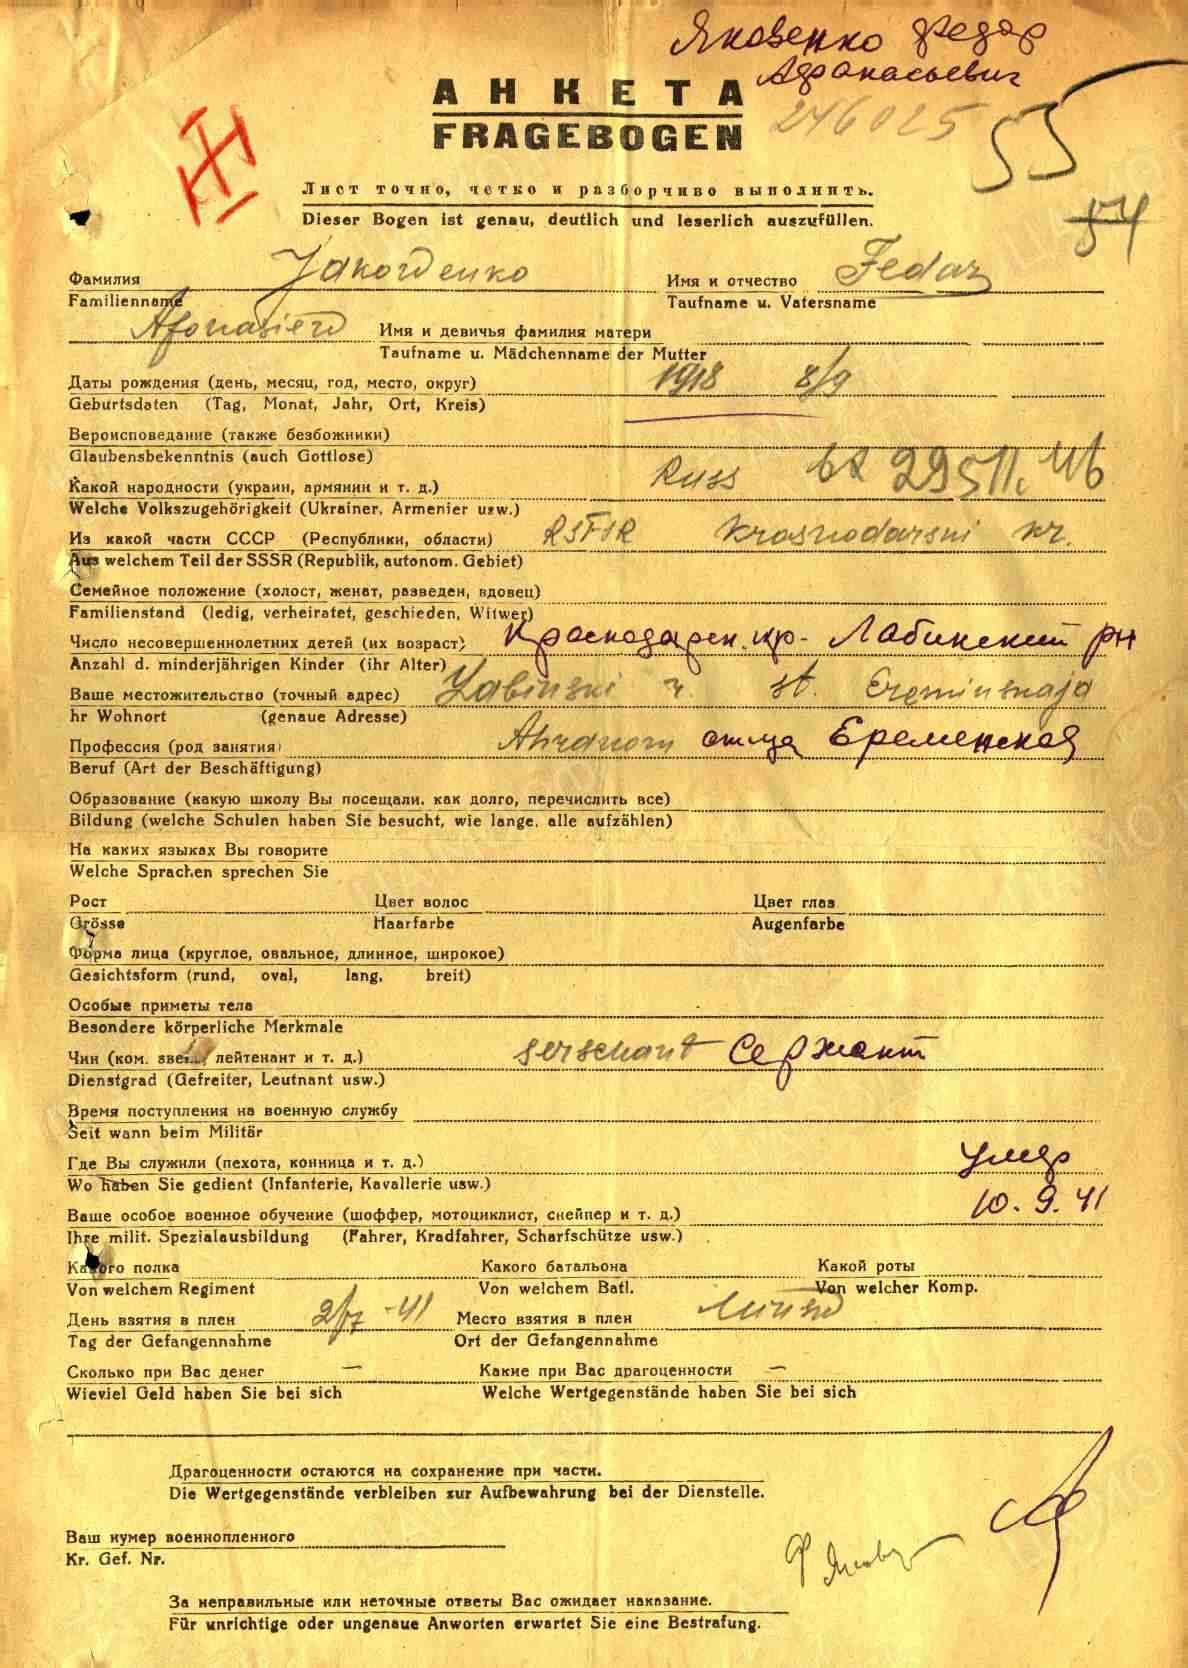 Яковенко Федор
Афанасьевич
АНКЕТА
FRAGEBOGEN
246025
55
54
Лист точно, четко и разборчиво выполнить.
Dieser Bogen ist genau, deutlich und leserlich auszufüllen.
Фамилия Имя и отчество Fedor
Familienname Taufname u. Vatersname
Имя и девичья фамилия матери
Taufname u. Mädchenname der Mutter
Даты рождения (день, месяц, год, место, округ) 1918 8/9
Geburtsdaten (Tag, Monat, Jahr, Ort, Kreis)
Вероисповедание (также безбожники)
Glaubensbekenntnis (auch Gottlose)
Какой народности (украин, армянин и т. д.) Russ
Welche Volkszugehörigkeit (Ukrainer, Armenier usw.)
Из какой части СССР (Республики, области) RSFSR Krasnodarski Kr.
Aus welchem Teil der SSSR (Republik, autonom. Gebiet)
Семейное положение (холост, женат, разведен, вдовец)
Familienstand (ledig, verheiratet, geschieden, Witwer)
Число несовершеннолетних детей (их возраст) Краснодарск. кр- Лабинский рн
Anzahl d. minderjährigen Kinder (ihr Alter)
Ваше местожительство (точный адрес) Labinski r. st. Ereminskaja
hr Wohnort (genaue Adresse)
Профессия (род занятия) станица Еременская
Beruf (Art der Beschäftigung)
Образование (какую школу Вы посещали, как долго, перечислить все)
Bildung (welche Schulen haben Sie besucht, wie lange, alle aufzählen)
На каких языках Вы говорите
Welche Sprachen sprechen Sie
Рост Цвет волос Цвет глаз
Grösse Haarfarbe Augenfarbe
Форма лица (круглое, овальное, длинное, широкое)
Gesichtsform (rund, oval, lang, breit)
Особые приметы тела
Besondere körperliche Merkmale
Чин (ком. лейтенант и т. д.) serschant Сержант
Dienstgrad (Gefreiter, Leutnant usw.)
Время поступления на военную службу
Seit wann beim Militär
Где Вы служили (пехота, конница и т. д.) умер
Wo haben Sie gedient (Infanterie, Kavallerie usw.) 10.9.41
Ваше особое военное обучение (шоффер, мотоциклист, снейпер и т. д.)
Ihre milit. Spezialausbildung (Fahrer, Kradfahrer, Scharfschütze usw.)
Какого полка Какого батальона Какой роты
Von welchem Regiment Von welchem Batl. Von welcher Komp.
День взятия в плен 2/7-41 Место взятия в плен
Tag der Gefangennahme Ort der Gefangennahme
Сколько при Вас денег — Какие при Вас драгоценности —
Wieviel Geld haben Sie bei sich Welche Wertgegenstände haben Sie bei sich
Драгоценности остаются на сохранение при части.
Die Wertgegenstände verbleiben zur Aufbewahrung bei der Dienstelle.
Ваш нумер военнопленного
Kr. Gef. Nr.
За неправильные или неточные ответы Вас ожидает наказание.
Für unrichtige oder ungenaue Anworten erwartet Sie eine Bestrafung.